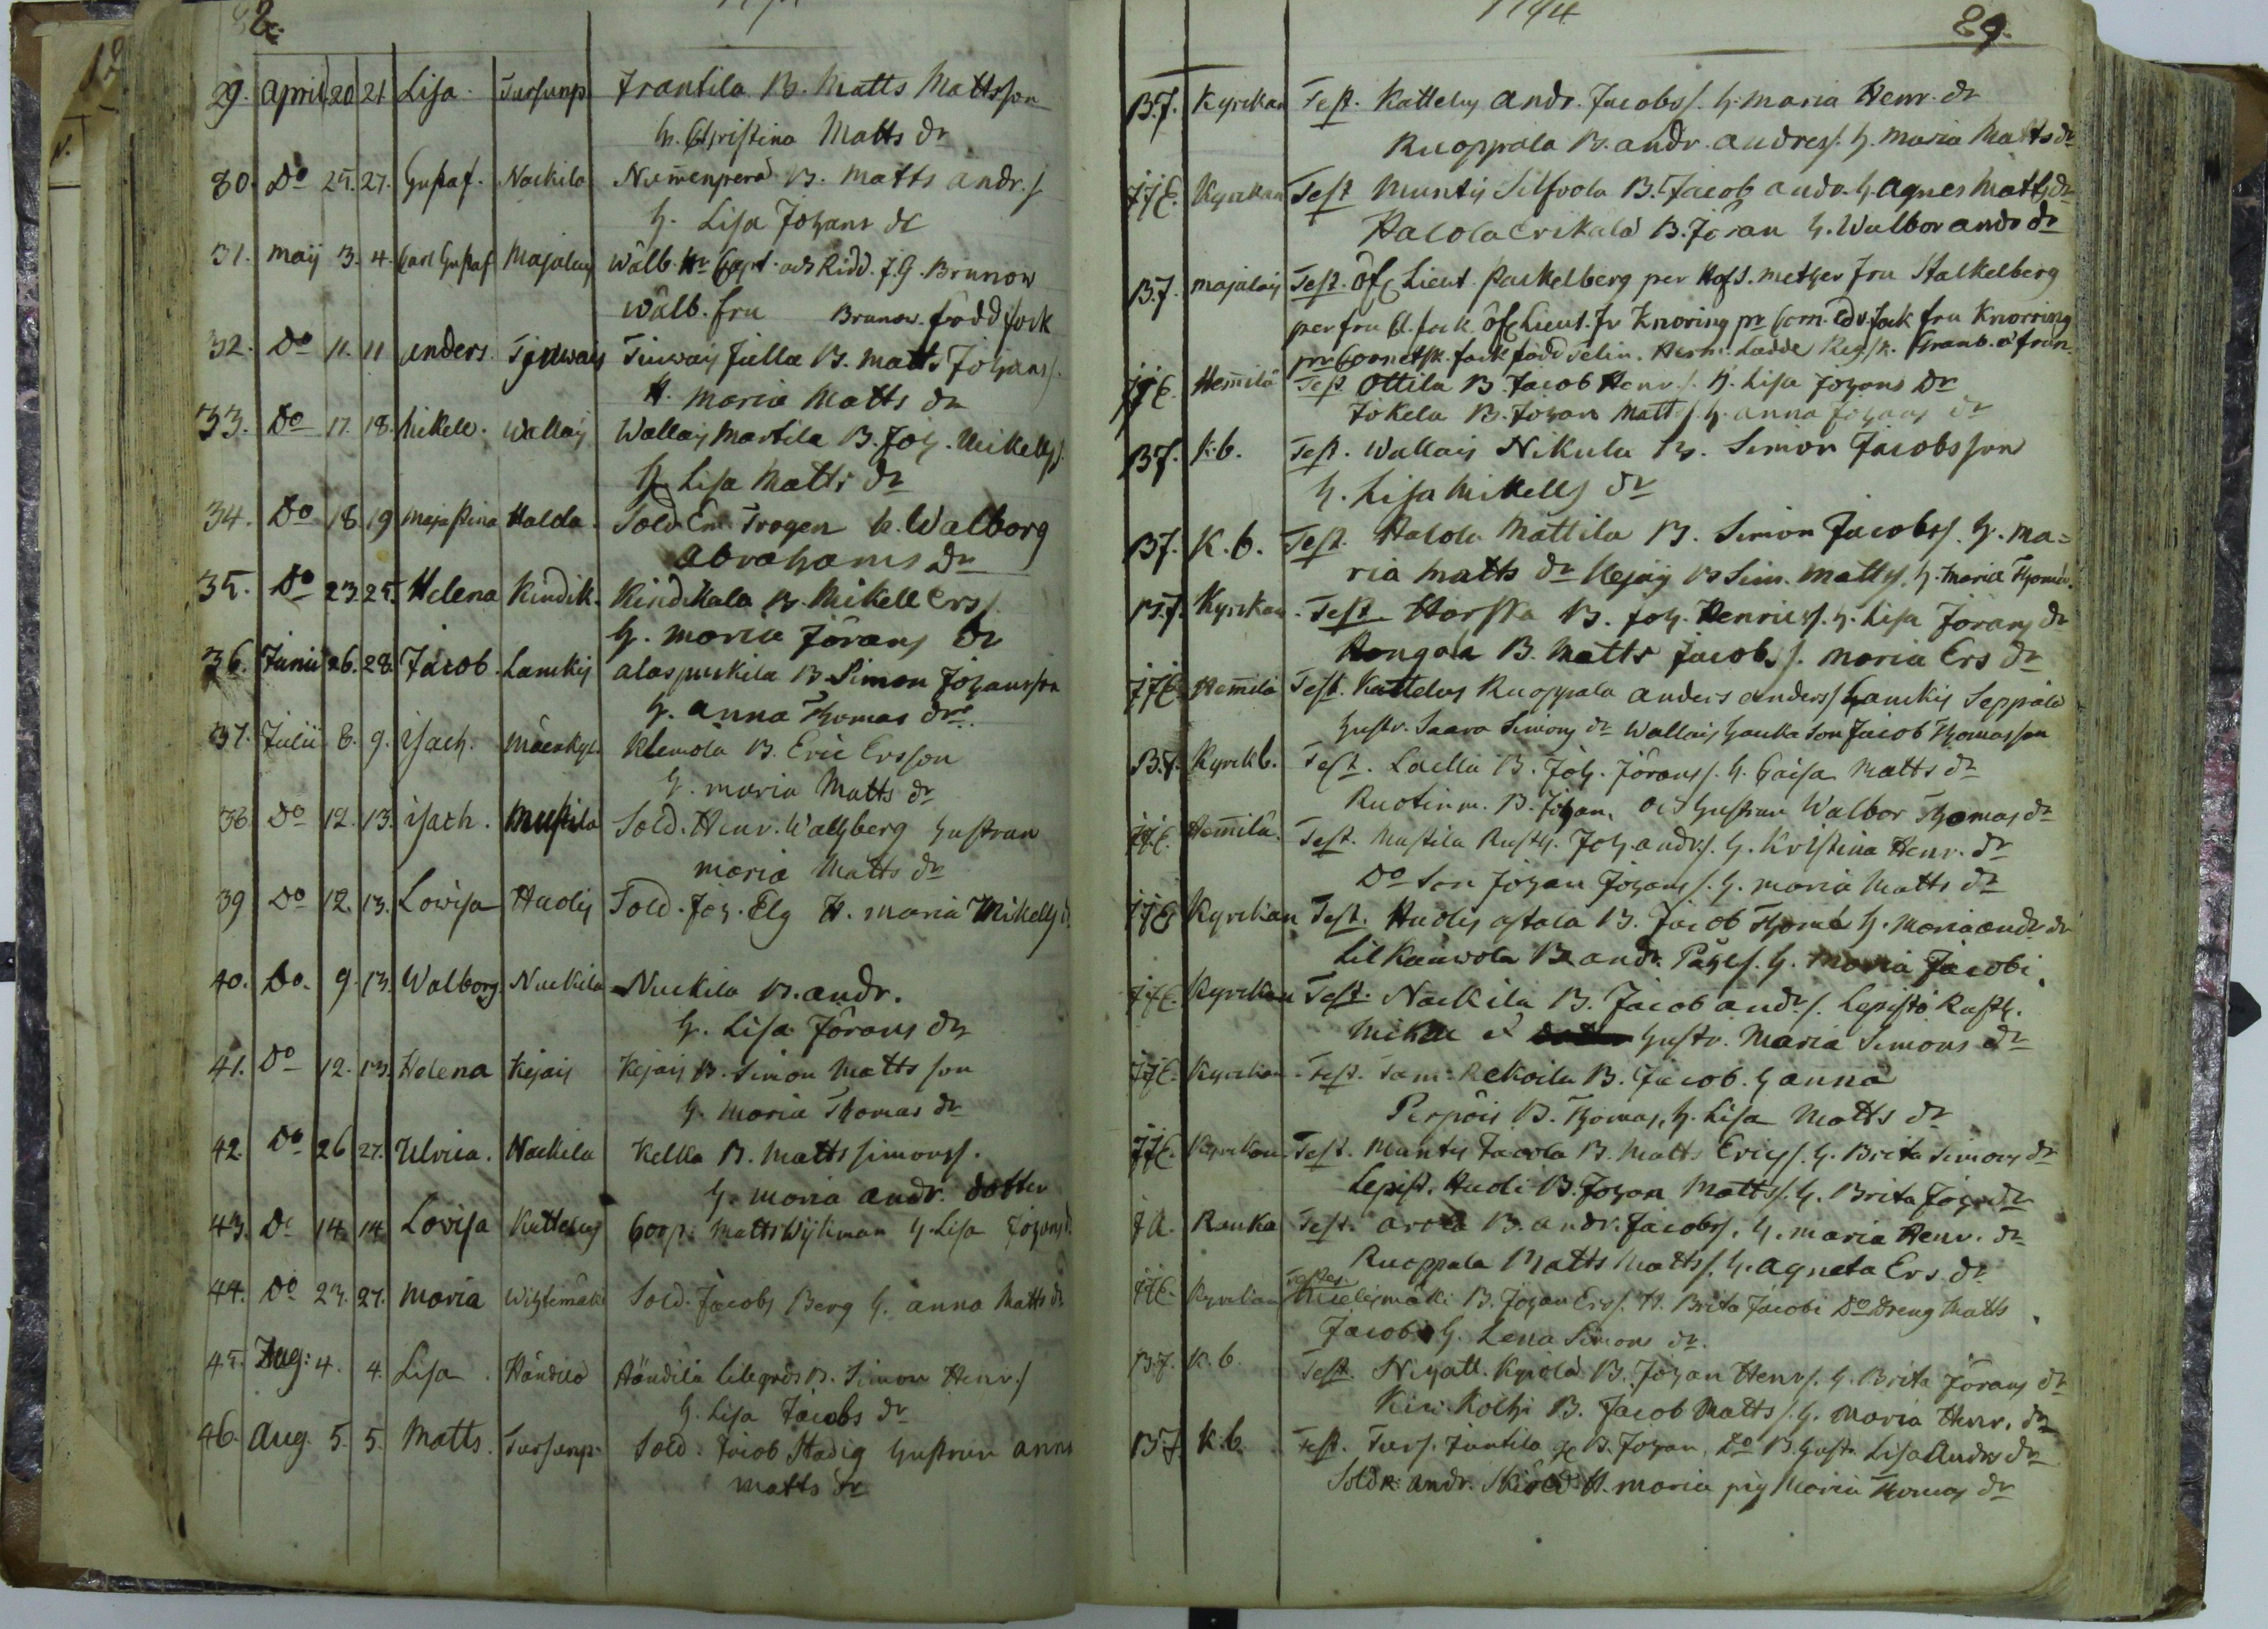 29. April 20 21 Lisa. Tursunp Frantila B. Matts Mattsson
h. Christina Matts dr
30. Do 25. 27. Gustaf. Nackila Nummenperä B. Matts Andr. s
h. Lisa Johans dr
31. Maij 3. 4. Carl Gustaf Majalaij Wälb. Hr Capt. och Ridd. J. G. Brunow
Wälb. fru Brunow. född fock
32. Do 11. 11 Anders. Tjuwais Tiuwais Jullla B. Matts Johans s.
H. Maria Matts dr
33. Do 17. 18. Mikell. Wallais Wallais Martila B. Joh. Mikells s.
h. Lisa Matts dr
34. Do 18. 19 Maja Stina Halola. Sold. Er. Trogen h. Walborg
Abrahams dr
35. Do 23. 25. Helena Kindik. Kindikala B. Mikell Ers s.
h. Maria Jörans dr
36. Junii 26. 28. Jacob. Lamkis Alaspuskila B. Simon Johansson
h. Anna Thomas dr.
37. Julii 8. 9. Isach. Mäenkyl. Klemola B. Eric Ersson
h. Maria Matts dr
38. Do 12. 13. Isach. Mustila Sold. Henr. Wallberg hustrun
Maria Matts dr
39 Do 12. 13. Lowisa Huolis Sold. Joh. Elg H. Maria Mikells d.
40. Do. 9. 13. Walborg Nuckila Nuckila B. Andr.
h. Lisa Jörans dr
41. Do 12. 13. Helena Kejais Kejais B. Simon Mattsson
h. Maria Thomas dr
42. Do 26 27. Ulrica. Nackila Kelkka B. Matts Simons s.
h. Maria Andr. dotter
43. Do 14. 14. Lovisa Kattelus Corp: Matts Wijkman h. Lisa Johans d.
44. Do 23. 27. Maria Wihtemäki Sold. Jacob Berg h. Anna Matts dr
45. Aug: 4. 4. Lisa. Händilä Händilä lilegrds B. Simon Henr. s
h. Lisa Jacobs dr
46. Aug. 5. 5. Matts. Tursunp. Sold. Jacob Stadig hustrun Anna
Matts dr
1794
29.
B.F. Kyrckan Test. Kattelus Andr. Jacobs s. h. Maria Henr. dr
Ruoppala B. Andr. Andres s. h. Maria Matts dr
JJE. Kyrckan Test Muntis Silfvola B. Jacob Andr. h. Agnes Matts dr
Halola Erikala B. Jöran h. Walbor Andr dr
B.F. Majalais Test. öfl Lieut. Stackelberg per Hofj. Mether fru Stalkelberg
per fru Cl. fock. öfl Lieut. Fr Knoring pr Corn. Edv. fock fru Knorring
pr Cornetsk. fock född Telin.
JJE. Hemmilä Test Ottila B. Jacob Henr. s. h. Lisa Johans dr
Jokela B. Johan Matt s. h. Anna Johans dr
B.F. K.b. Test. Wallais Nikula B. Simon Jacobsson
h. Lisa Mikells dr
B.F. K.b. Test. Halola Mattila B. Simon Jacobs s. h. Ma=
ria Matts dr Kejais B Sim. Matts s. h. Maria Thom dr.
B.F. Kyrckan. Test Horsta B. Joh. Henrics s. h. Lisa Jörans dr
Hongola B. Matts Jacobs s. Maria Ers dr
JJE Hemmilä Test. Kattelus Ruoppala Anders Anders s Lamkis Seppälä
hustr. Saara Simons dr Wallais hauka Son Jacob Thomasson
B.F. Kyrck b. Test. Laella B. Joh. Jörans s. h. Caisa Matts dr
Ruotinm. B. Johan, och hustrun Walbor Thomas dr
JJE. Hemmilä. Test. Mustila Rusth. Joh. Andr. s. h. Kristina Henr. dr
Do Son Johan Johans s. h. Maria Matts dr
JJE Kyrckan Test. Huolis Astala B. Jacob Thoms h. Maria Andr dr
Lilkauwola B. Andr. Påhl s. h. Maria Jacobi
JJE. Kyrckan Test. Nackila B. Jacob Andr s. Lepistö Rusth.
Mikel & hustr. Maria Simons dr
JJE. Kyrckan. Test. Sam: Rekoila B. Jacob. h Anna
Pispois B. Thomas, h. Lisa Matts dr
JJE. Kyrckan Test. Muntis Jacola B. Matts Erics s. h. Brita Simons dr
Lepist. Huoli B. Johan Matts s. h. Brita Joh. dr
J.A. Rauka Test. Arola B. Andr. Jacobs s. h. Maria Henr. dr
Ruoppala Matts Matts s. h. Agneta Ers dr
JJE. Kyrckan Testes Mielismäki B. Johan Ers s. H. Brita Jacobi Do Dreng Matts
Jacobs h. Lena Simons dr.
B.F. K.b. Test. Nyatt. Kyrölä B. Johan Henr s. h. Brita Jörans dr
Kiri Kolhi B. Jacob Matts s. h. Maria Henr. dr
B.F. K.b. Test. Turs. Juntila B. Johan, Do B. hustr. Lisa Andrs dr
Sold. Andr. Skiöld. H. Maria pig Maria Thomas dr